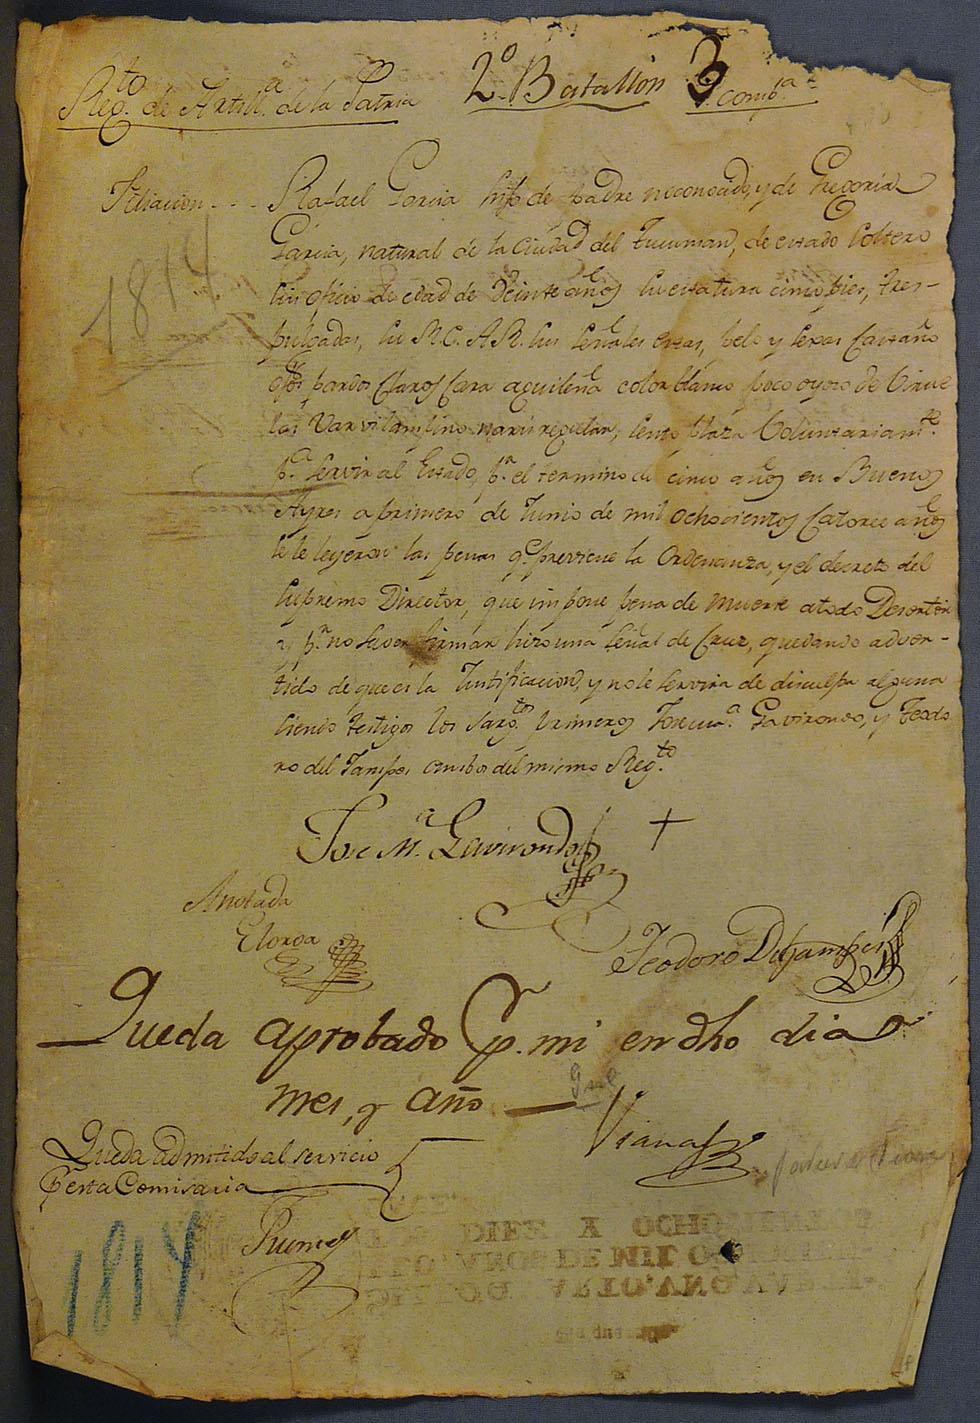 Reg.to de Artill.a de la Patria 2.o Batallon 3 comp.a
Filiacion - - - Rafael Garcia hijo de padre no conocido, y de Gregoria
Garcia, natural de la Ciudad del Tucuman, de estado Soltero
sin oficio de edad de veinte años su estatura cinco pies, tres-
pulgadas, su R. C. A. R. sus señales estas, pelo y sejas Castaño
ojos pardos claros cara aguileña color blanco poco oyoso de virue
las varvilampino nariz regular, sento plaza Voluntariam.te
p.a servir al Estado, p.r el termino de cinco años en Buenos
Ayres a primero de Junio de mil ochocientos catorce años
se le leyeron las penas q.e previene la Ordenanza, y el decreto del
Supremo Director, que impone pena de muerte a todo Desertor
y p.r no saver firmar hizo una señal de Cruz, quedando adver-
tido de que es la Justificacion, y no le servira de disculpa alguna
siendo testigos los Sarg.tos primeros Jose M.a Gavirondo, y Teodo
ro del Campo ambos del mismo Reg.to
Jose M.a Gavirondo +
Anotada
Elorga
Teodoro Del
Queda aprobado p.r mi en dho dia
mes, y año
Viana
Queda admitido al servicio
p.r esta Comisaria
1814
1814